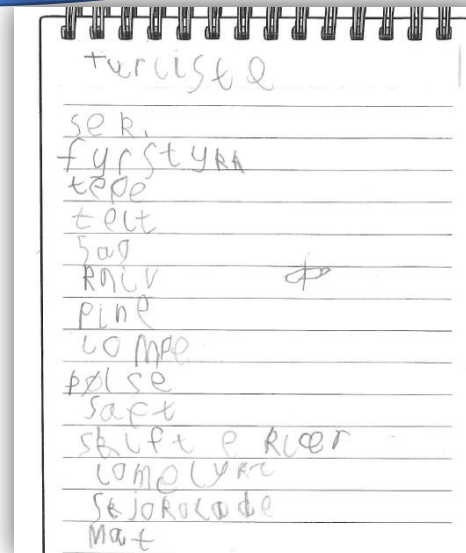 turliste
sek.
fyrstykk
tepe
telt
sag
kniv
pine
lompe
pølse
saft
skiftekler
lomelykt
skjokolade
mat